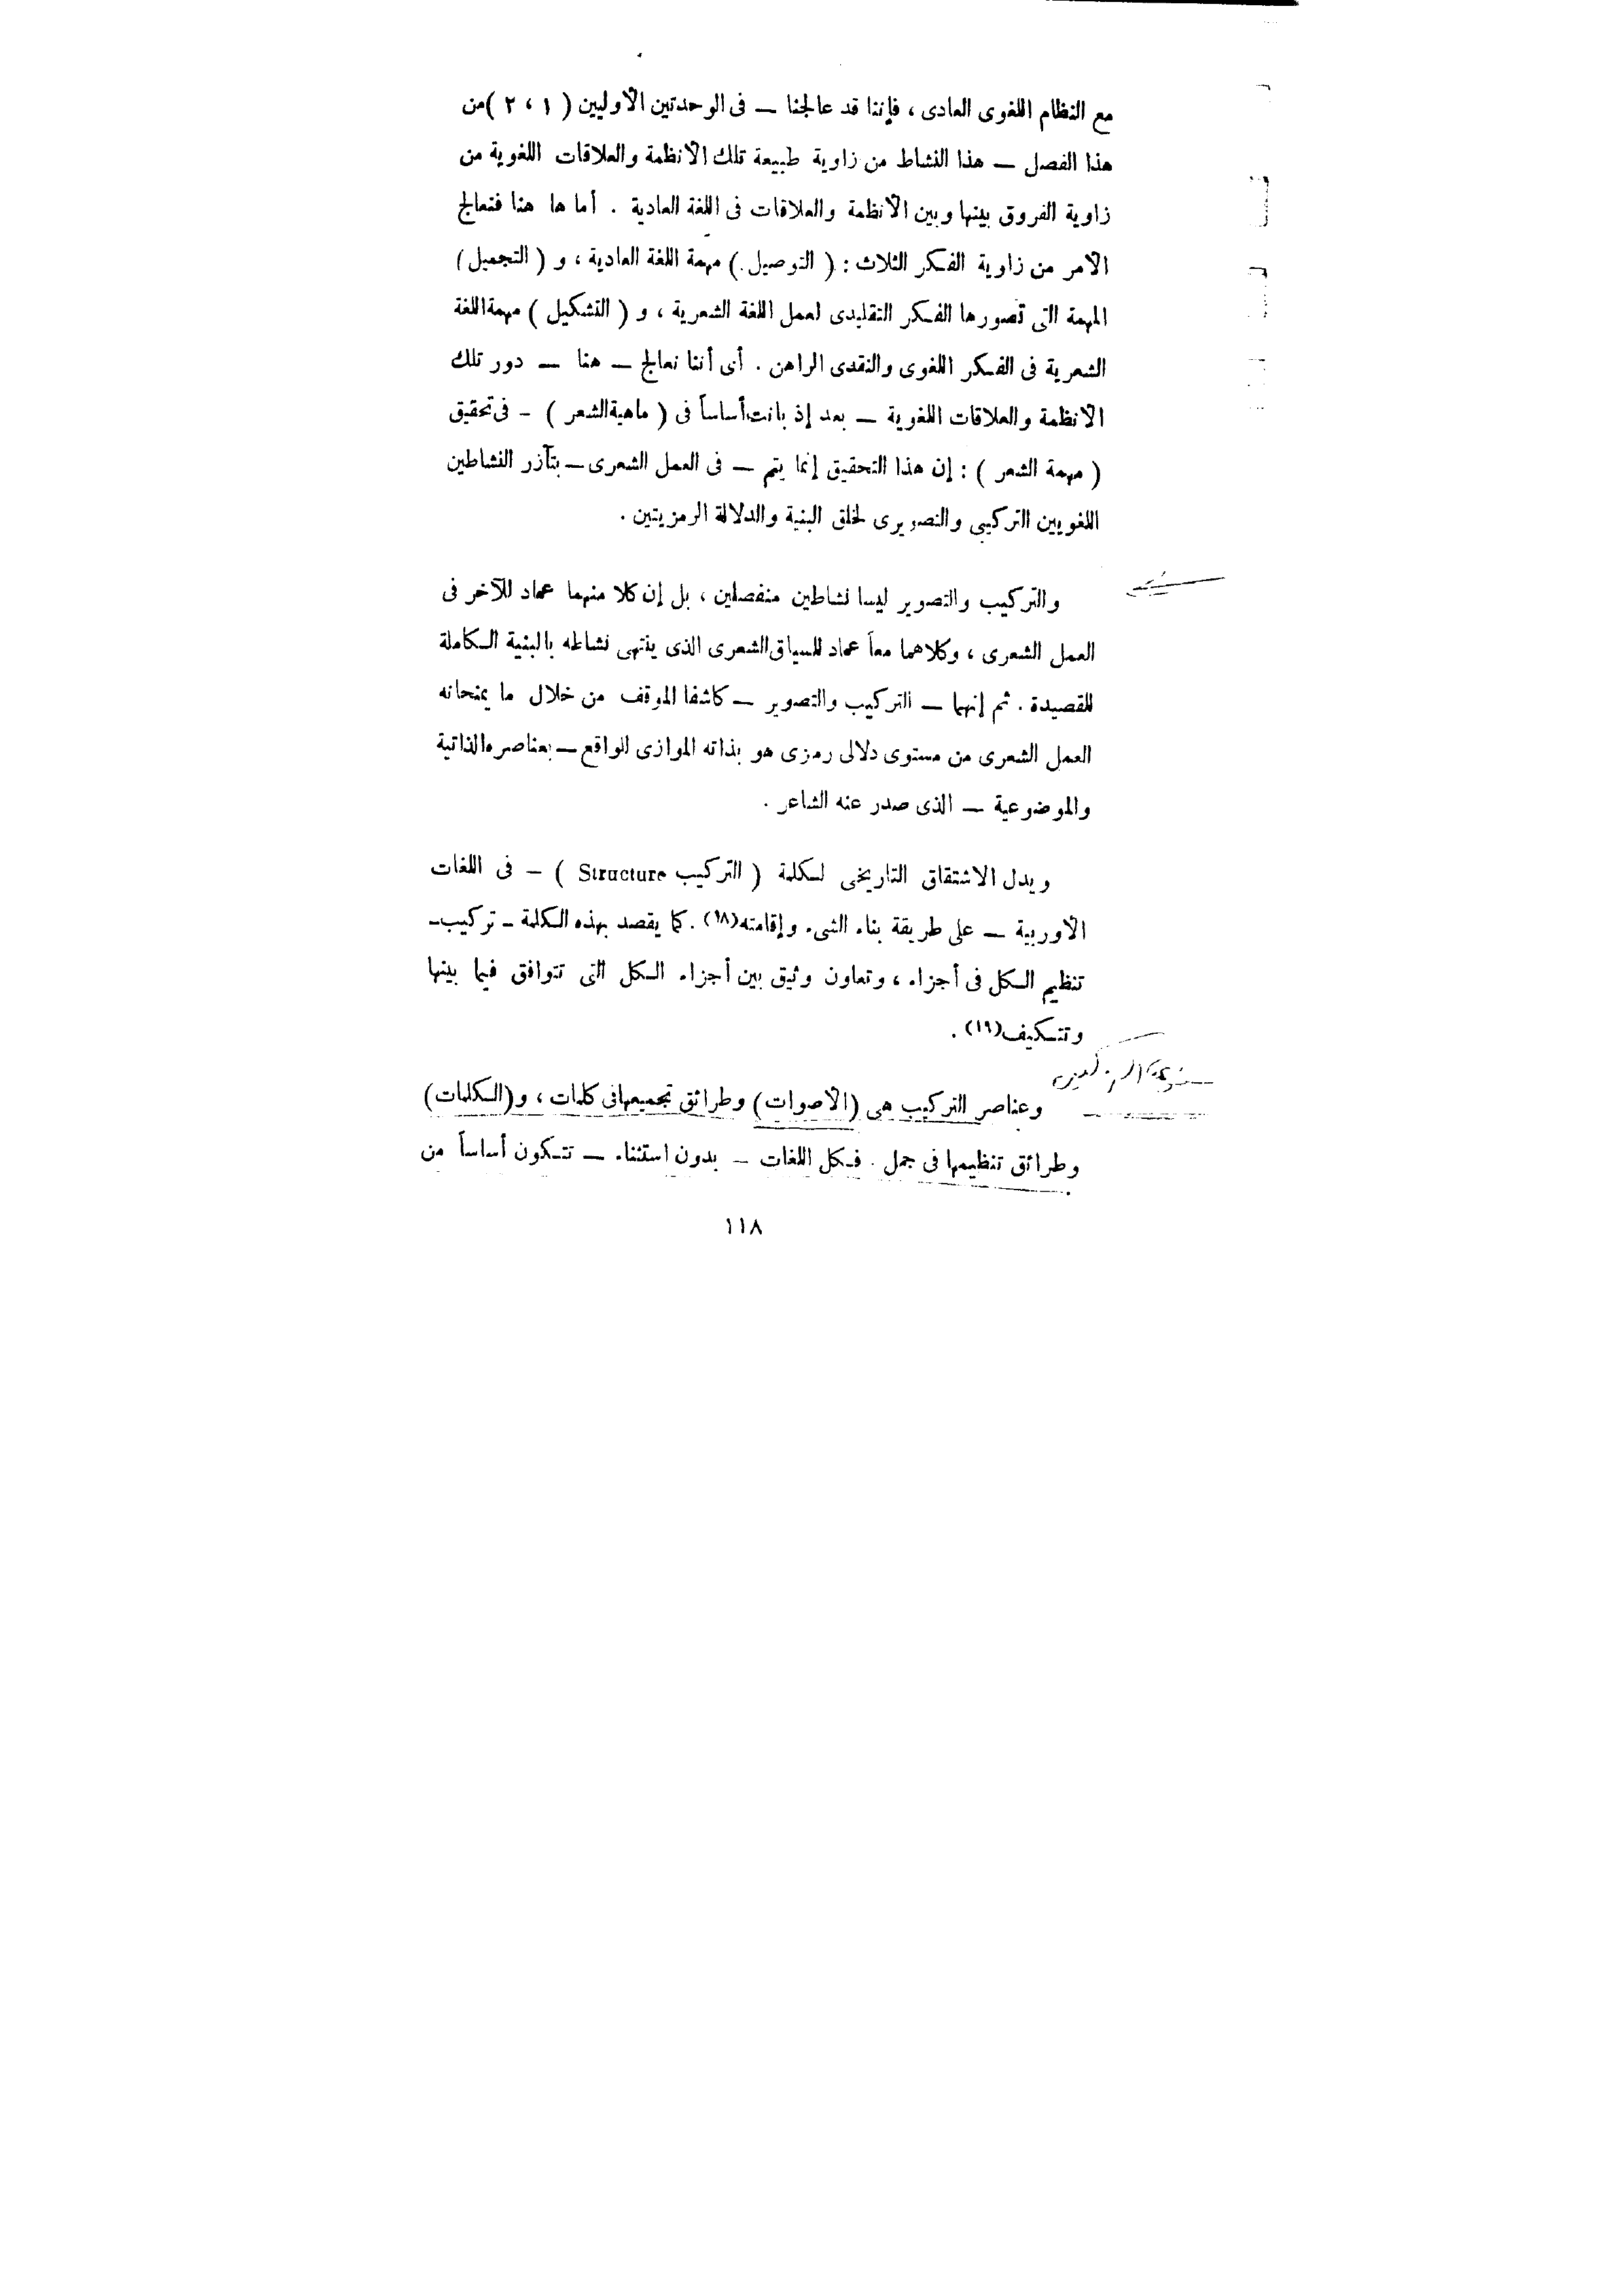 مع النظام اللغوى العادى ، فإننا قد عالجنا — فى الوحدتين الأوليين ( ١ ، ٢ ) من
هذا الفصل — هذا النشاط من زاوية طبيعة تلك الأنظمة والعلاقات اللغوية من
زاوية الفروق بينها وبين الأنظمة والعلاقات فى اللغة العادية . أما ها هنا فنعالج
الأمر من زاوية الفكر الثلاث : ( التوصيل ) مهمة اللغة العادية ، و ( التجميل )
المهمة التى تصورها الفكر التقليدى لعمل اللغة الشعرية ، و ( التشكيل ) مهمة اللغة
الشعرية فى الفكر اللغوى والنقدى الراهن . أى أننا نعالج — هنا — دور تلك
الأنظمة والعلاقات اللغوية — بعد إذ بانت أساساً فى ( ماهية الشعر ) – فى تحقيق
( مهمة الشعر ) : إن هذا التحقيق إنما يتم — فى العمل الشعرى — بتآزر النشاطين
اللغويين التركيبى والتصويرى لخلق البنية والدلالة الرمزيتين .
والتركيب والتصوير ليسا نشاطين منفصلين ، بل إن كلا منهما عماد للآخر فى
العمل الشعرى ، وكلاهما معاً عماد للسياق الشعرى الذى ينتهى نشاطه بالبنية الكاملة
للقصيدة . ثم إنهما — التركيب والتصوير — كاشفا الموقف من خلال ما يمنحانه
العمل الشعرى من مستوى دلالى رمزى هو بذاته الموازى للواقع — بعناصره الذاتية
والموضوعية — الذى صدر عنه الشاعر .
ويدل الاشتقاق التاريخى لكلمة ( التركيب Structure ) – فى اللغات
الأوربية — على طريقة بناء الشىء وإقامته(١٨) . كما يقصد بهذه الكلمة – تركيب –
تنظيم الكل فى أجزاء ، وتعاون وثيق بين أجزاء الكل التى تتوافق فيما بينها
وتتكيف(١٩) .
وعناصر التركيب هى (الأصوات) وطرائق تجميعها فى كلمات ، و(الكلمات)
وطرائق تنظيمها فى جمل . فكل اللغات – بدون استثناء — تتكون أساساً من
١١٨